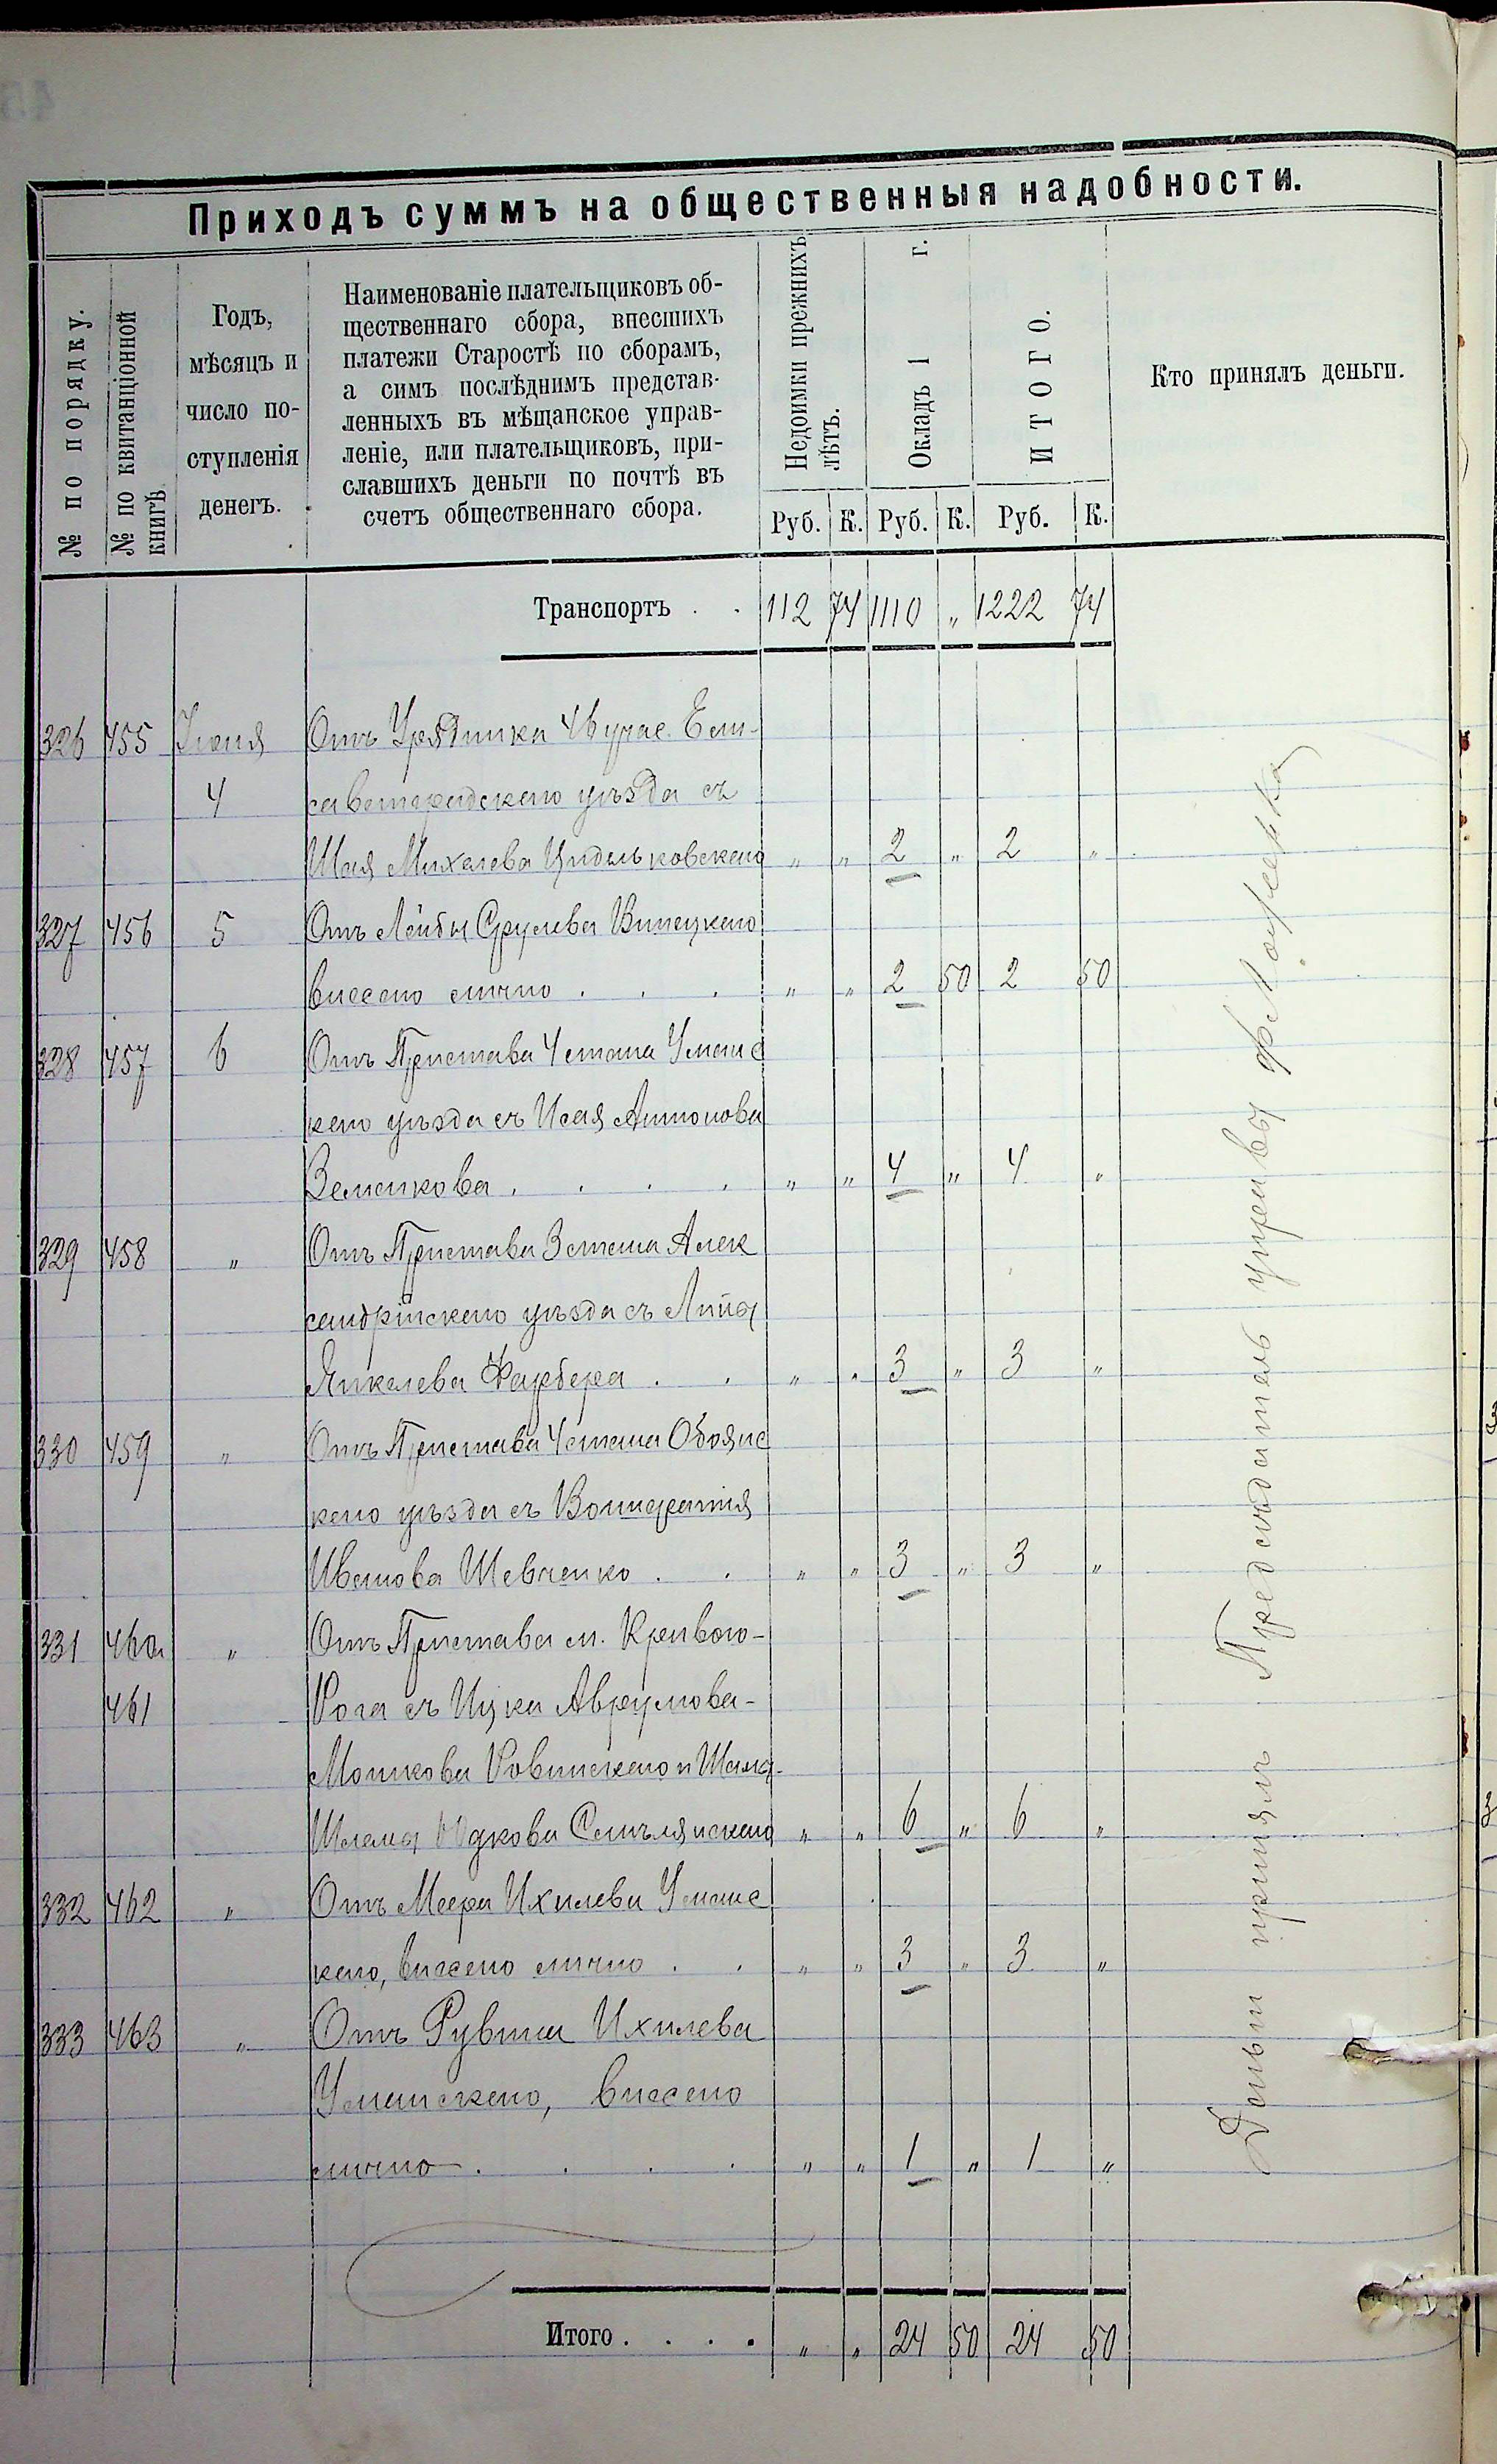 Приходъ суммъ на общественныя надобности.
№ по порядку.
№ по квитанціонной
книгѣ.
Годъ,
мѣсяцъ и
число по-
ступленія
денегъ.
Наименованіе плательщиковъ об-
щественнаго сбора, внесшихъ
платежи Старостѣ по сборамъ,
а симъ послѣднимъ представ-
ленныхъ въ мѣщанское управ-
леніе, или плательщиковъ, при-
славшихъ деньги по почтѣ въ
счетъ общественнаго сбора.
Недоимки прежнихъ
лѣтъ.
Окладъ 1 г.
ИТОГО.
Кто принялъ деньги.
Руб. К. Руб. К. Руб. К.
Транспортъ . . 112 74 1110 „ 1222 74
326 455 Іюня Отъ Урядника 4 б учас. Ели-
4 саветградскаго уѣзда съ
Шая Михелева „ „ 2 „ 2 „
327 456 5 Отъ Лейбы Срулева Винецкаго
внесено лично . . . „ „ 2 50 2 50
328 457 6 Отъ Пристава 4 стана Уманс
каго уѣзда съ Исая Антонова
Земенкова . . . . „ „ 4 „ 4 „
329 458 „ Отъ Пристава 3 стана Алек
сандрійскаго уѣзда съ
Янкелева Фарбера . . „ „ 3 „ 3 „
330 459 „ Отъ Пристава 4 стана Обоянс
каго уѣзда съ
Иванова Шевченко . . „ „ 3 „ 3 „
331 460 и „ Отъ Пристава м. Кривого-
461 Рога съ Ицка Аврумова-
Мошкова Ровинскаго и
Шлема Юдкова „ „ 6 „ 6 „
332 462 „ Отъ Меера Ихилева Уманс
каго, внесено лично . . „ „ 3 „ 3 „
333 463 „ Отъ Рувина Ихилева
Уманскаго, внесено
лично . . . . „ „ 1 „ 1 „
Итого . . . . „ „ 24 50 24 50
Деньги принялъ Председатель управы
3
3